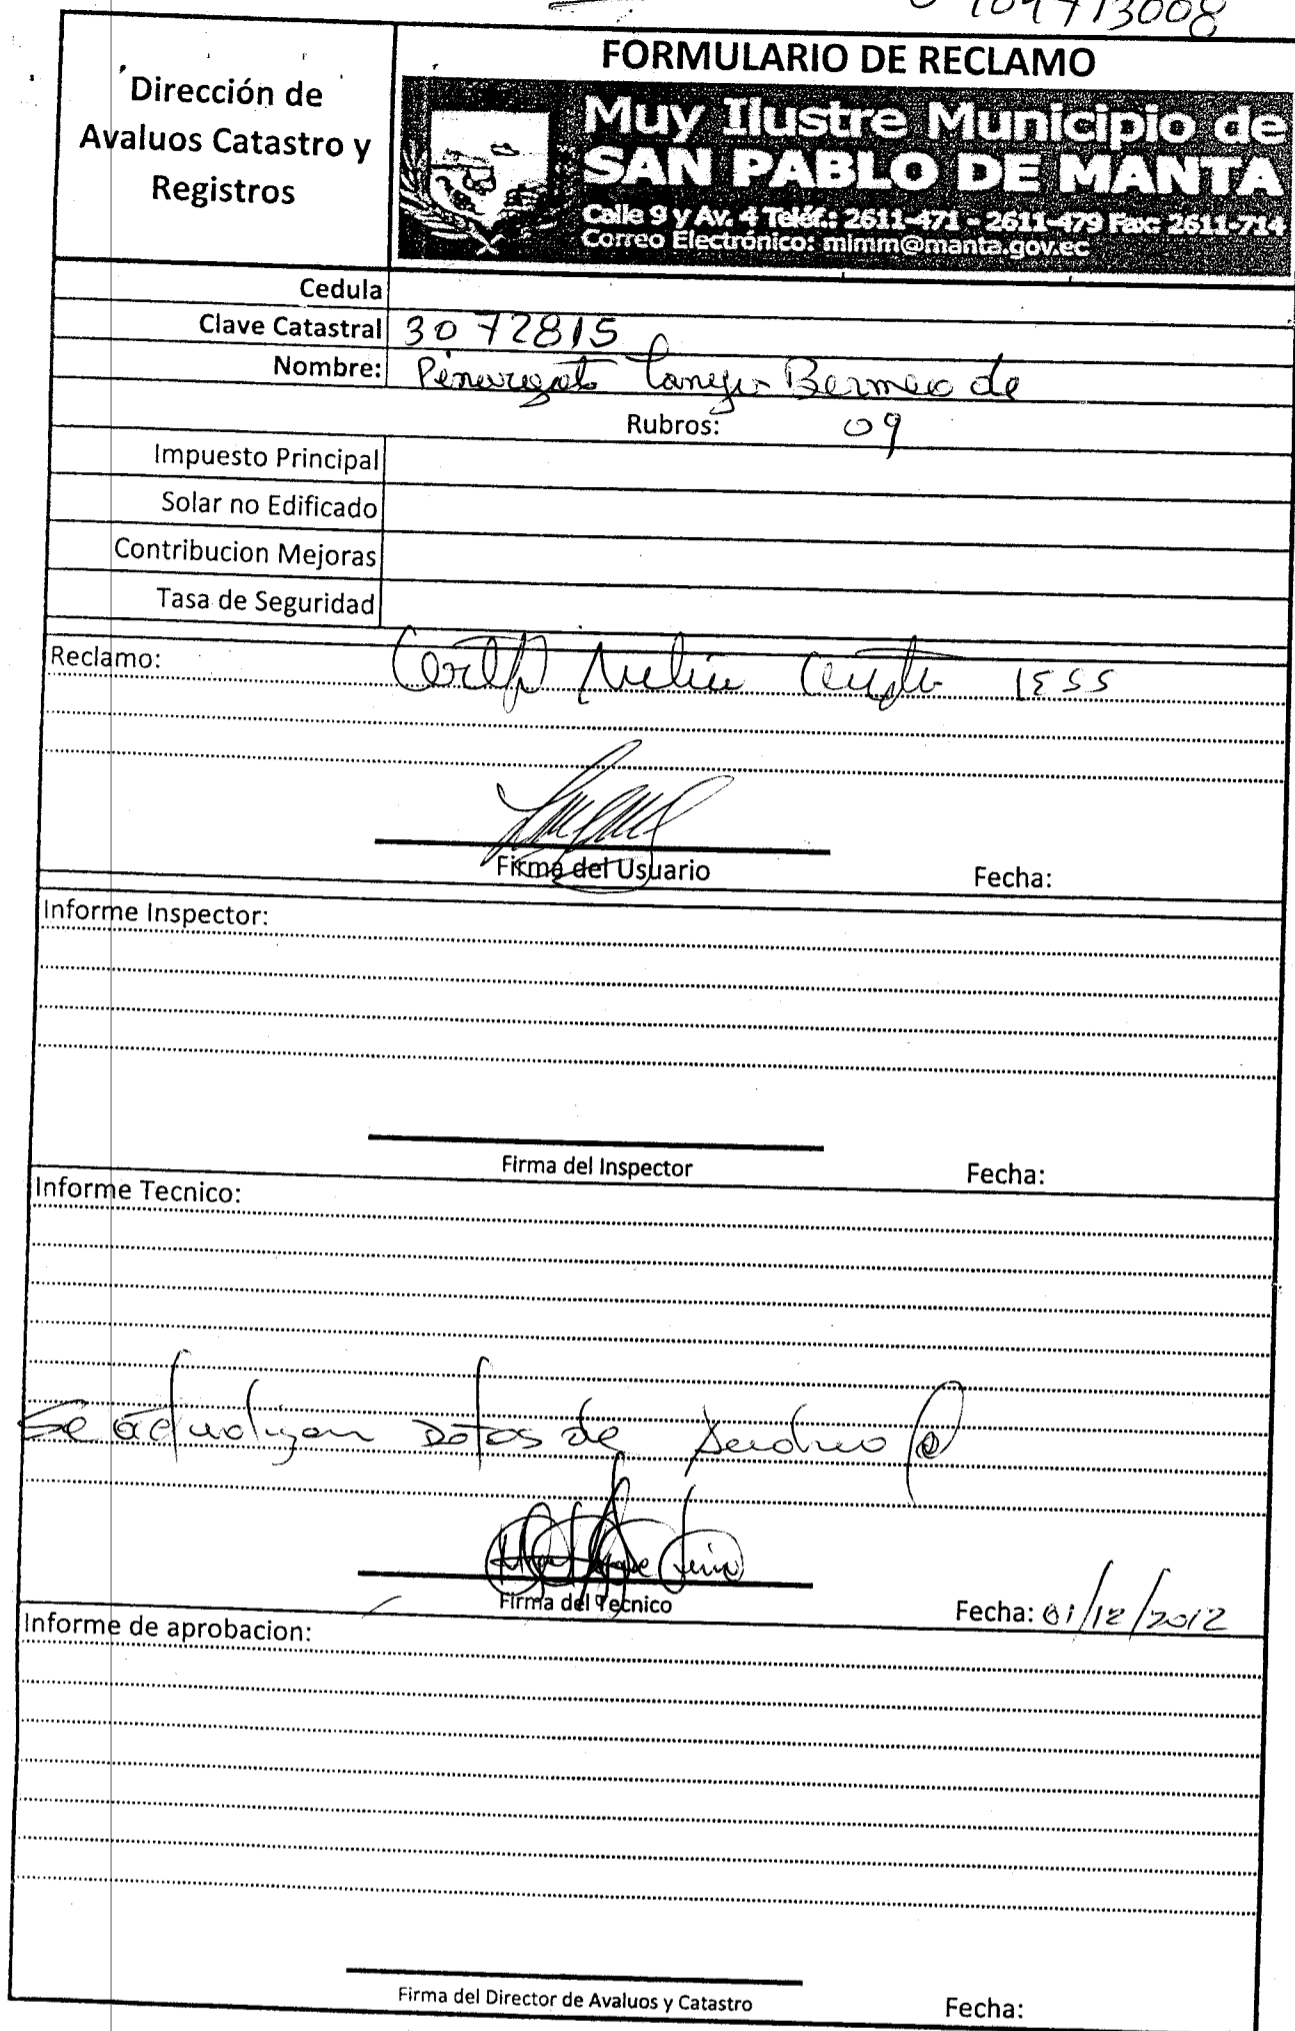 FORMULARIO DE RECLAMO
Dirección de
Avaluos Catastro y
Registros
Muy Ilustre Municipio de
SAN PABLO DE MANTA
Calle 9 y Av. 4 Teléf.: 2611-471 - 2611-479 Fax: 2611-714
Correo Electrónico: mimm@manta.gov.ec
Cedula
Clave Catastral 3072815
Nombre: Bermeo de
Rubros: 09
Impuesto Principal
Solar no Edificado
Contribucion Mejoras
Tasa de Seguridad
Reclamo: IESS
Firma del Usuario Fecha:
Informe Inspector:
Firma del Inspector Fecha:
Informe Tecnico:
Se actualizan Datos de
Firma del Tecnico Fecha: 01/12/2012
Informe de aprobacion:
Firma del Director de Avaluos y Catastro Fecha: